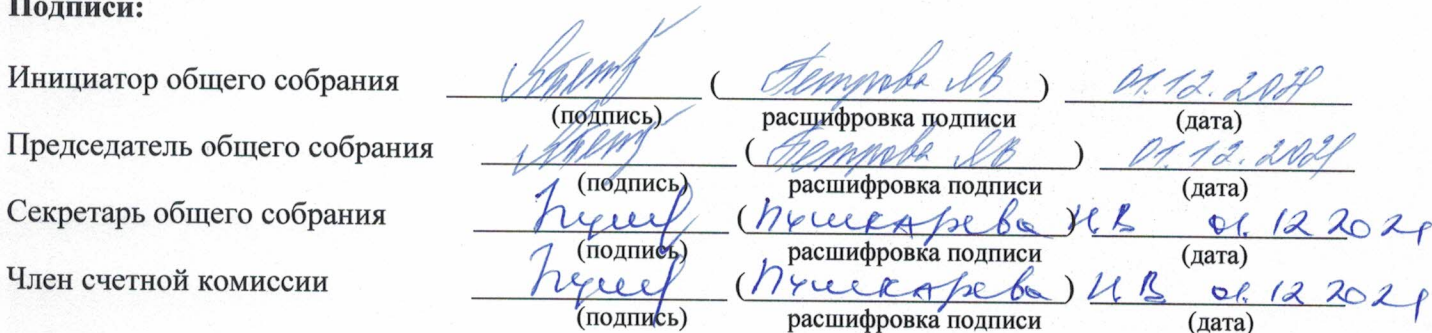 Подписи:
Инициатор общего собрания ( Петрова ЯВ ) 01.12.2021
(подпись) расшифровка подписи (дата)
Председатель общего собрания ( Петрова ЯВ ) 01.12.2021
(подпись) расшифровка подписи (дата)
Секретарь общего собрания ( Пушкарева ) Н.В 01.12 2021
(подпись) расшифровка подписи (дата)
Член счетной комиссии ( Пушкарева ) Н В 01.12 2021
(подпись) расшифровка подписи (дата)